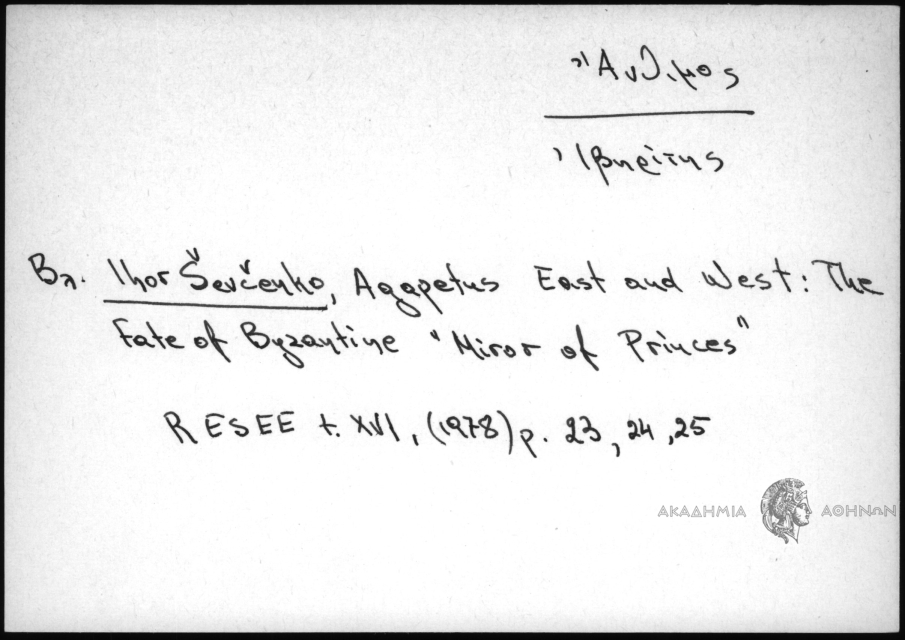 Ἄνθιμος
Ἰβηρίτης
Βλ. Ihor Ševčenko, Agapetus East and West: The
Fate of Byzantine "Miror of Princes"
RESEE t. XVI, (1978) p. 23, 24, 25
ΑΚΑΔΗΜΙΑ ΑΘΗΝΩΝ